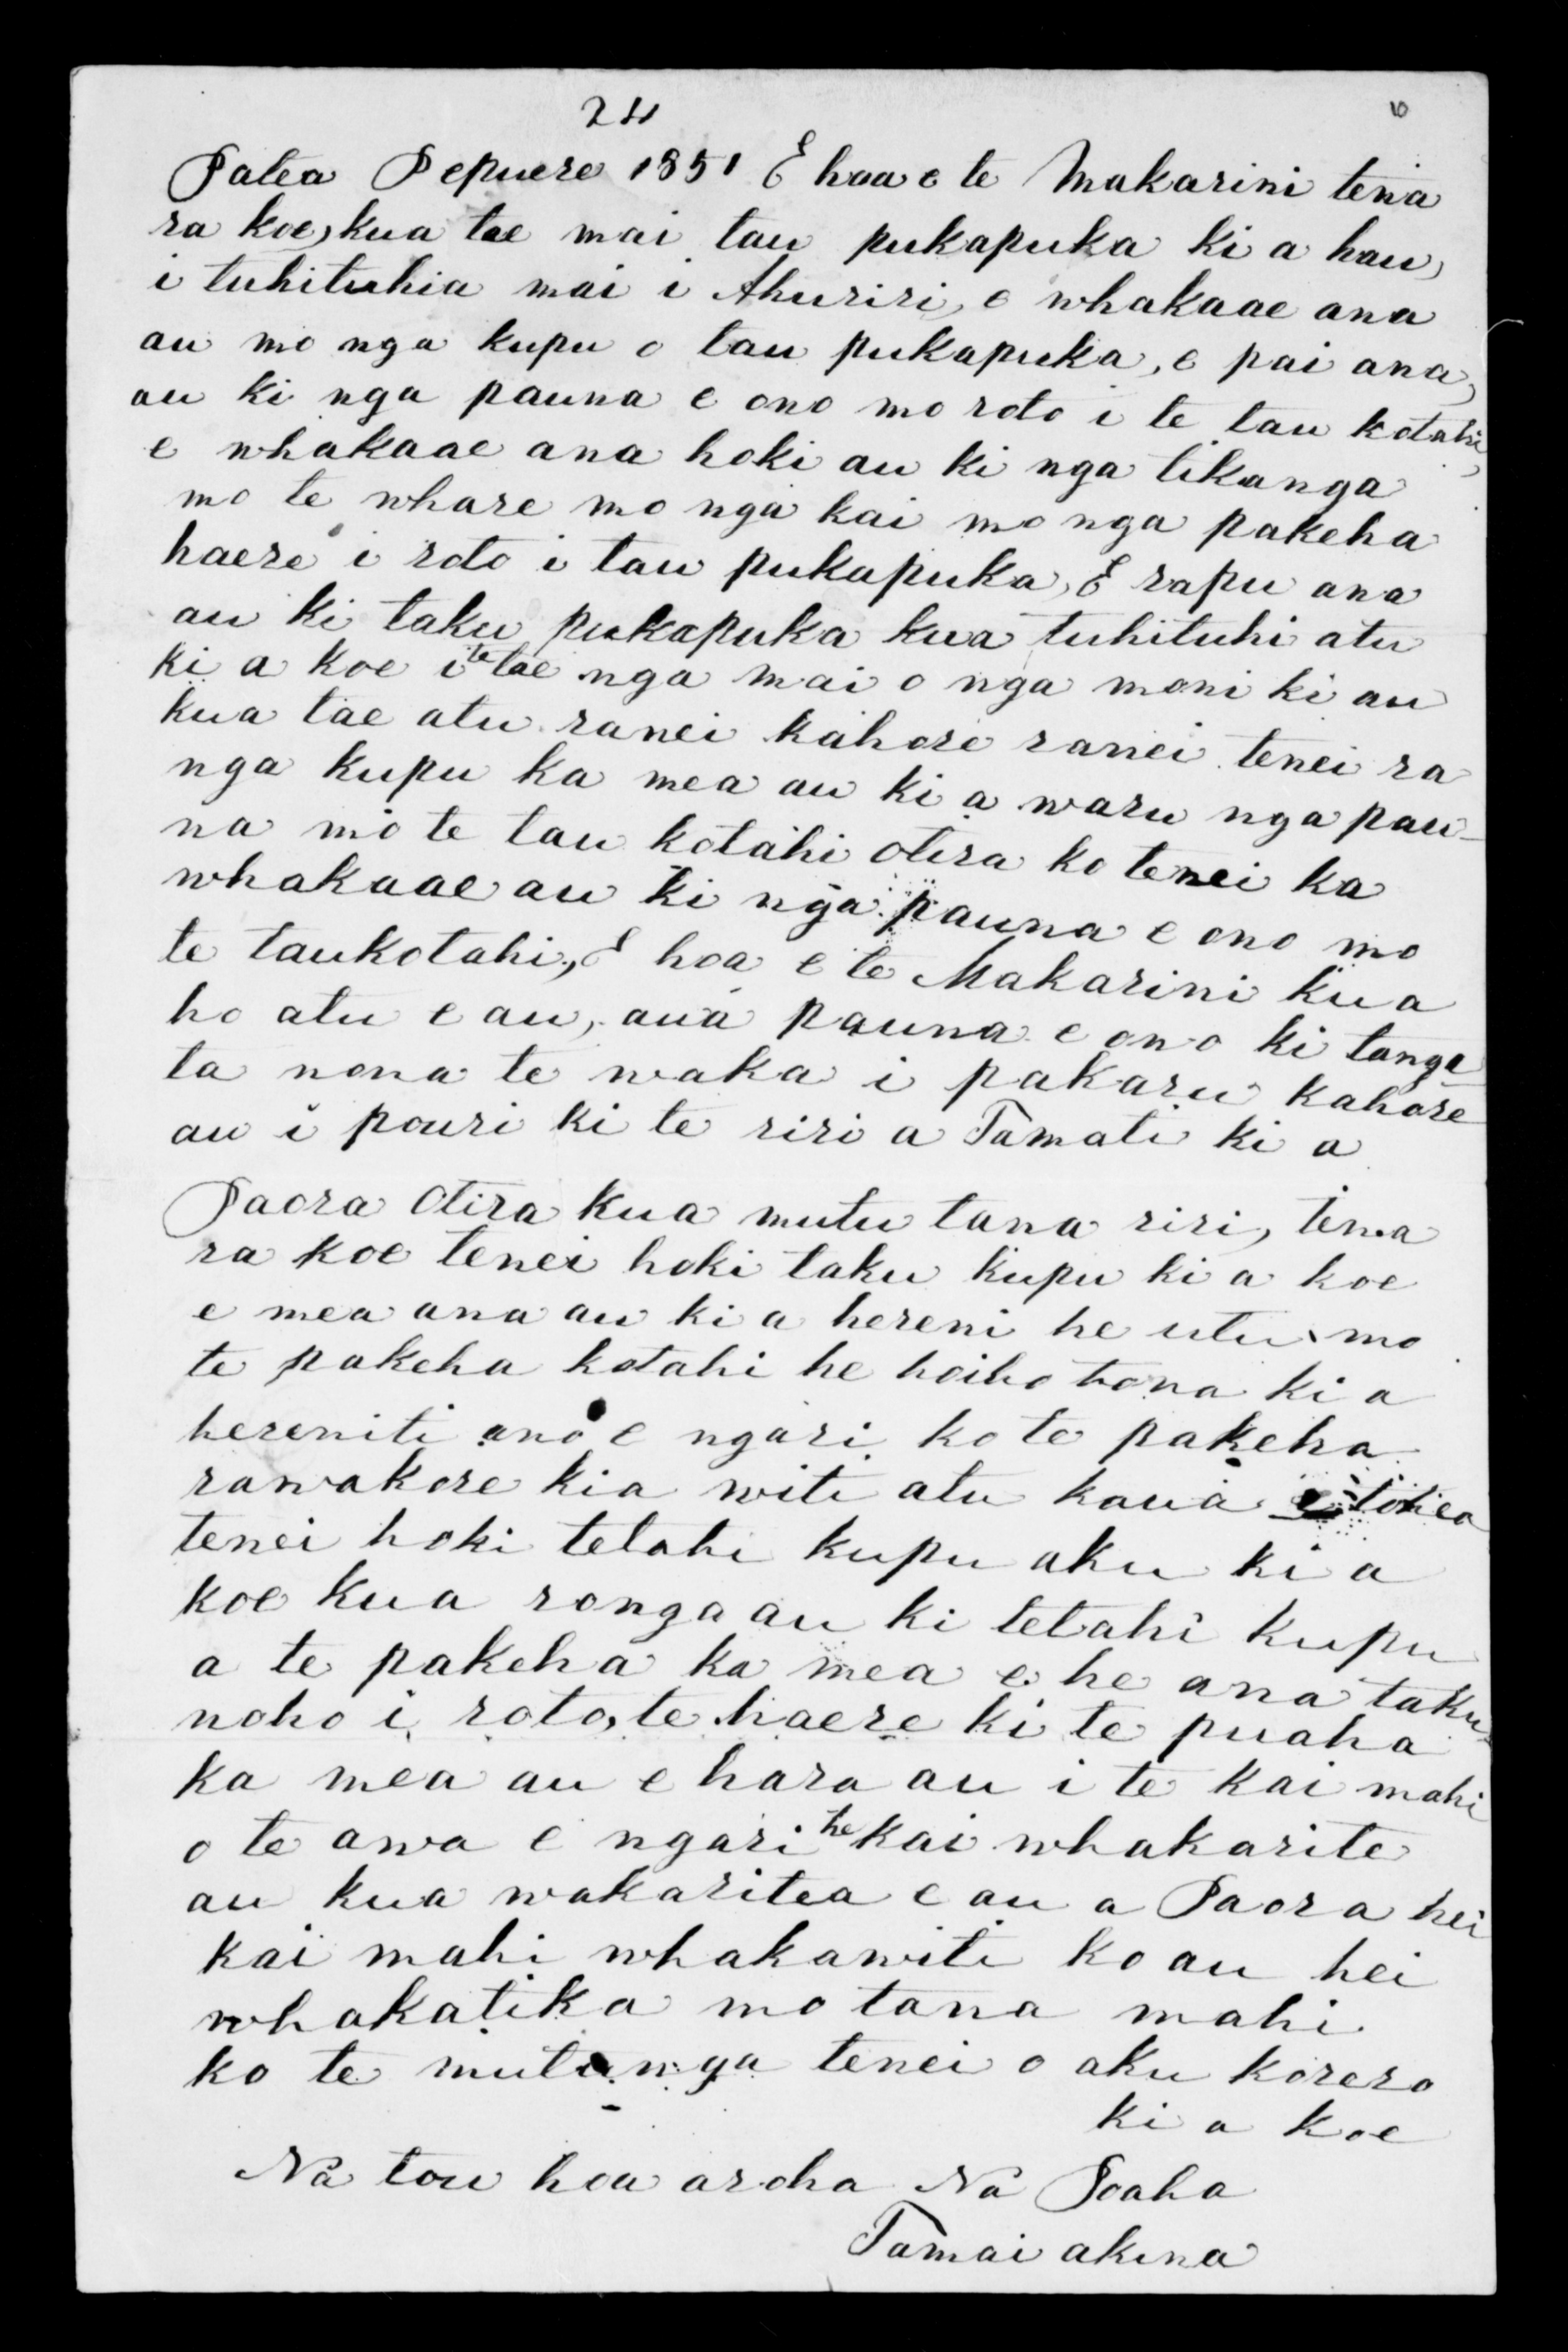 24
10
Patea Pepuere 1851 E hoa e te Makarini tena
ra koe, kua tae mai tau pukapuka ki a hau,
i tuhituhia mai i Ahuriri, e whakaae ana
au mo nga kupu o tau pukapuka, e pai ana,
au ki nga pauna e ono mo roto i te tau kotahi,
e whakaae ana hoki au ki nga tikanga
mo te whare mo nga kai mo nga pakeha
haere i roto i tau pukapuka, E rapu ana
au ki taku pukapuka kua tuhituhi atu
ki a koe i te tae nga mai o nga moni ki au
kua tae atu ranei kahore ranei tenei ra
nga kupu ka mea au ki a waru nga pau-
na mo te tau kotahi otira ko tenei ka
whakaae au ki nga pauna e ono mo
te taukotahi, E hoa e te Makarini kua
ho atu e au, aua pauna e ono ki tanga-
ta nona te waka i pakaru kahore
au i pouri ki te riri a Tamati ki a
Paora Otira kua mutu tana riri, tena
ra koe tenei hoki taku kupu ki a koe
e mea ana au ki a hereni he utu mo
te pakeha kotahi he hoiho tona ki a
hereniti ano e ngari ko te pakeha
rawakore kia witi atu kaua e tonea
tenei hoki tetahi kupu aku ki a
koe kua ronga au ki tetahi kupu
a te pakeha ka mea e he ana taku
noho i roto, te haere ki te puaha
ka mea au e hara au i te kai mahi
o te awa e ngari he kai whakarite
au kua wakaritea e au a Paora hei
kai mahi whakawiti ko au hei
whakatika mo tana mahi
ko te mutunga tenei o aku korero
ki a koe
Na tou hoa aroha Na Poaha
Tamai akena